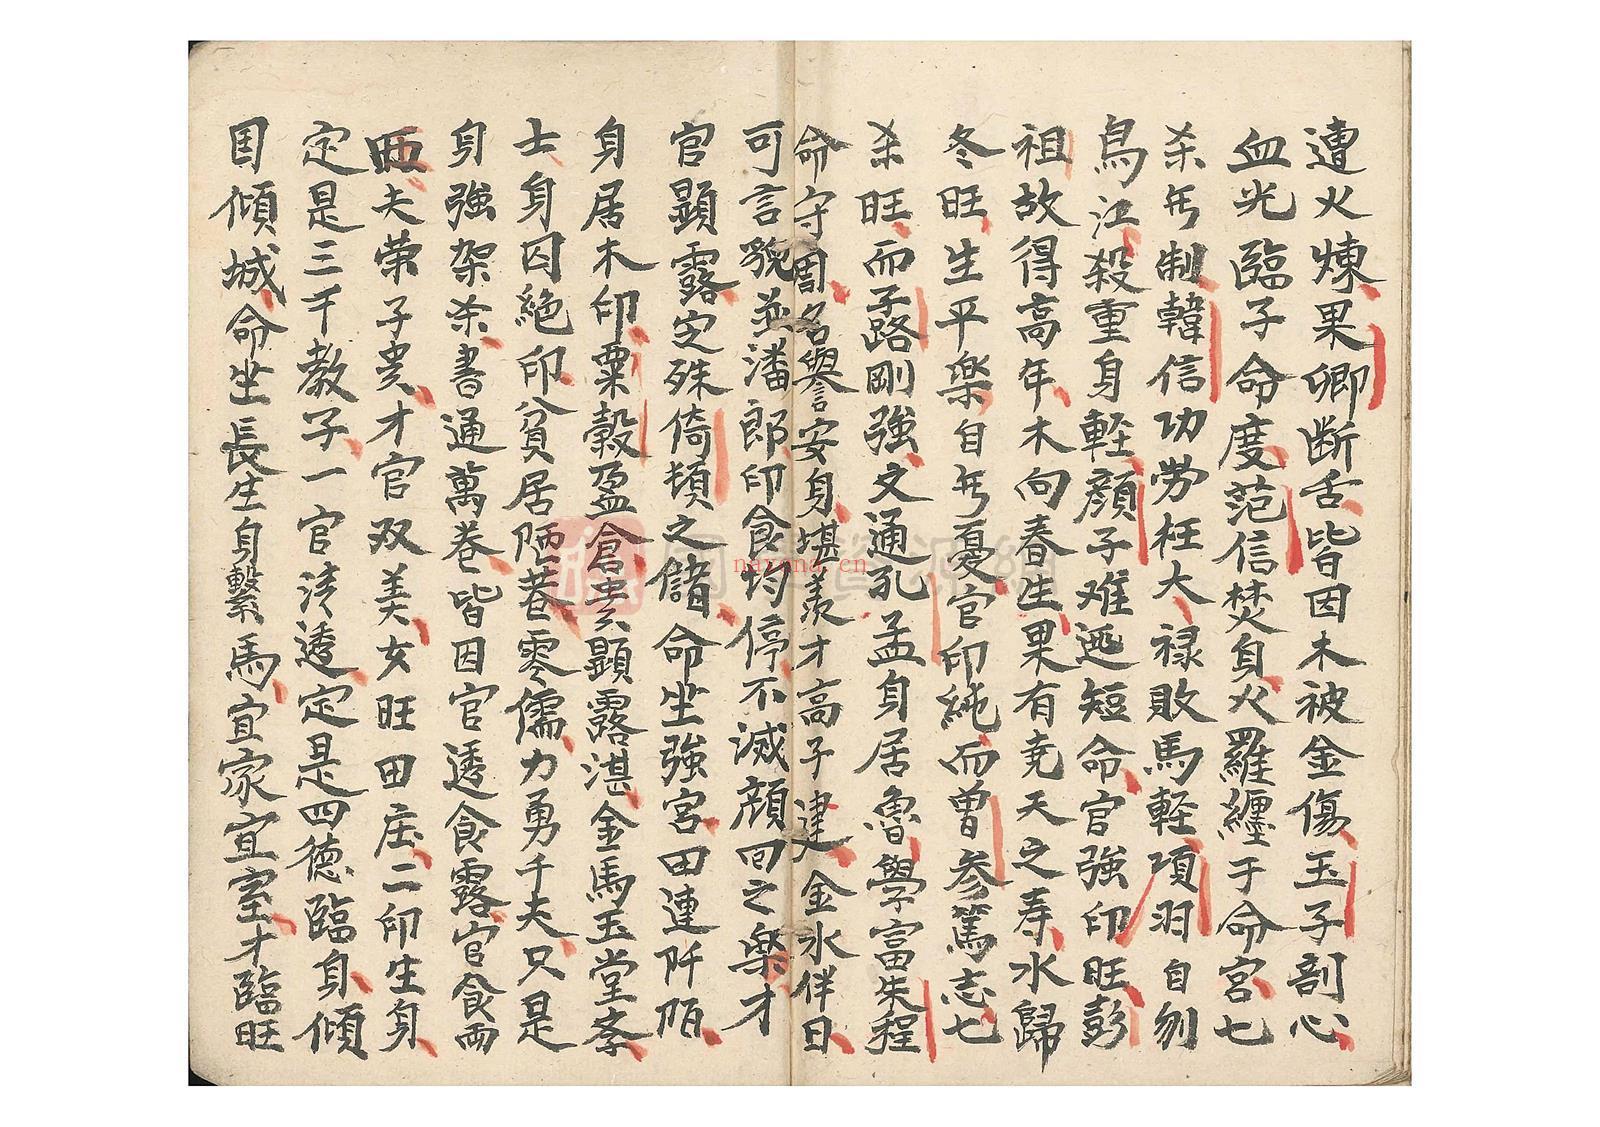 遭火煉果卿断舌皆因木被金傷玉子剖心
血光臨子命度范信焚身火羅纏于命宮七
杀旡制韓信功勞枉大禄敗馬軽項羽自刎
烏江殺重身軽顔子难逃短命官強印旺彭
祖故得高年木向春生果有尭天之寿水歸
冬旺生平樂自旡憂官印純而曽参篤志七
杀旺而子路剛強文通孔孟身居魯學富朱程
命守周名譽安身堪羨才高子建金水伴日
可言貌並潘郎印食均停不滅顔回之樂才
官顕露定殊倚頓之儲命坐強宮田連阡陌
身居木印粟穀盈倉贵顕露湛金馬玉堂李
士身囚絶印分貧居陋巷零儒力勇千夫只是
身強架杀書通萬巻皆因官透食露官食両
夫荣子贵才官双美女旺田庄二印生身
定是三千教子一官清透定是四德臨身傾
国傾城命坐長生身繫馬宜家宜室才臨旺
nayona.cn
國學資源網